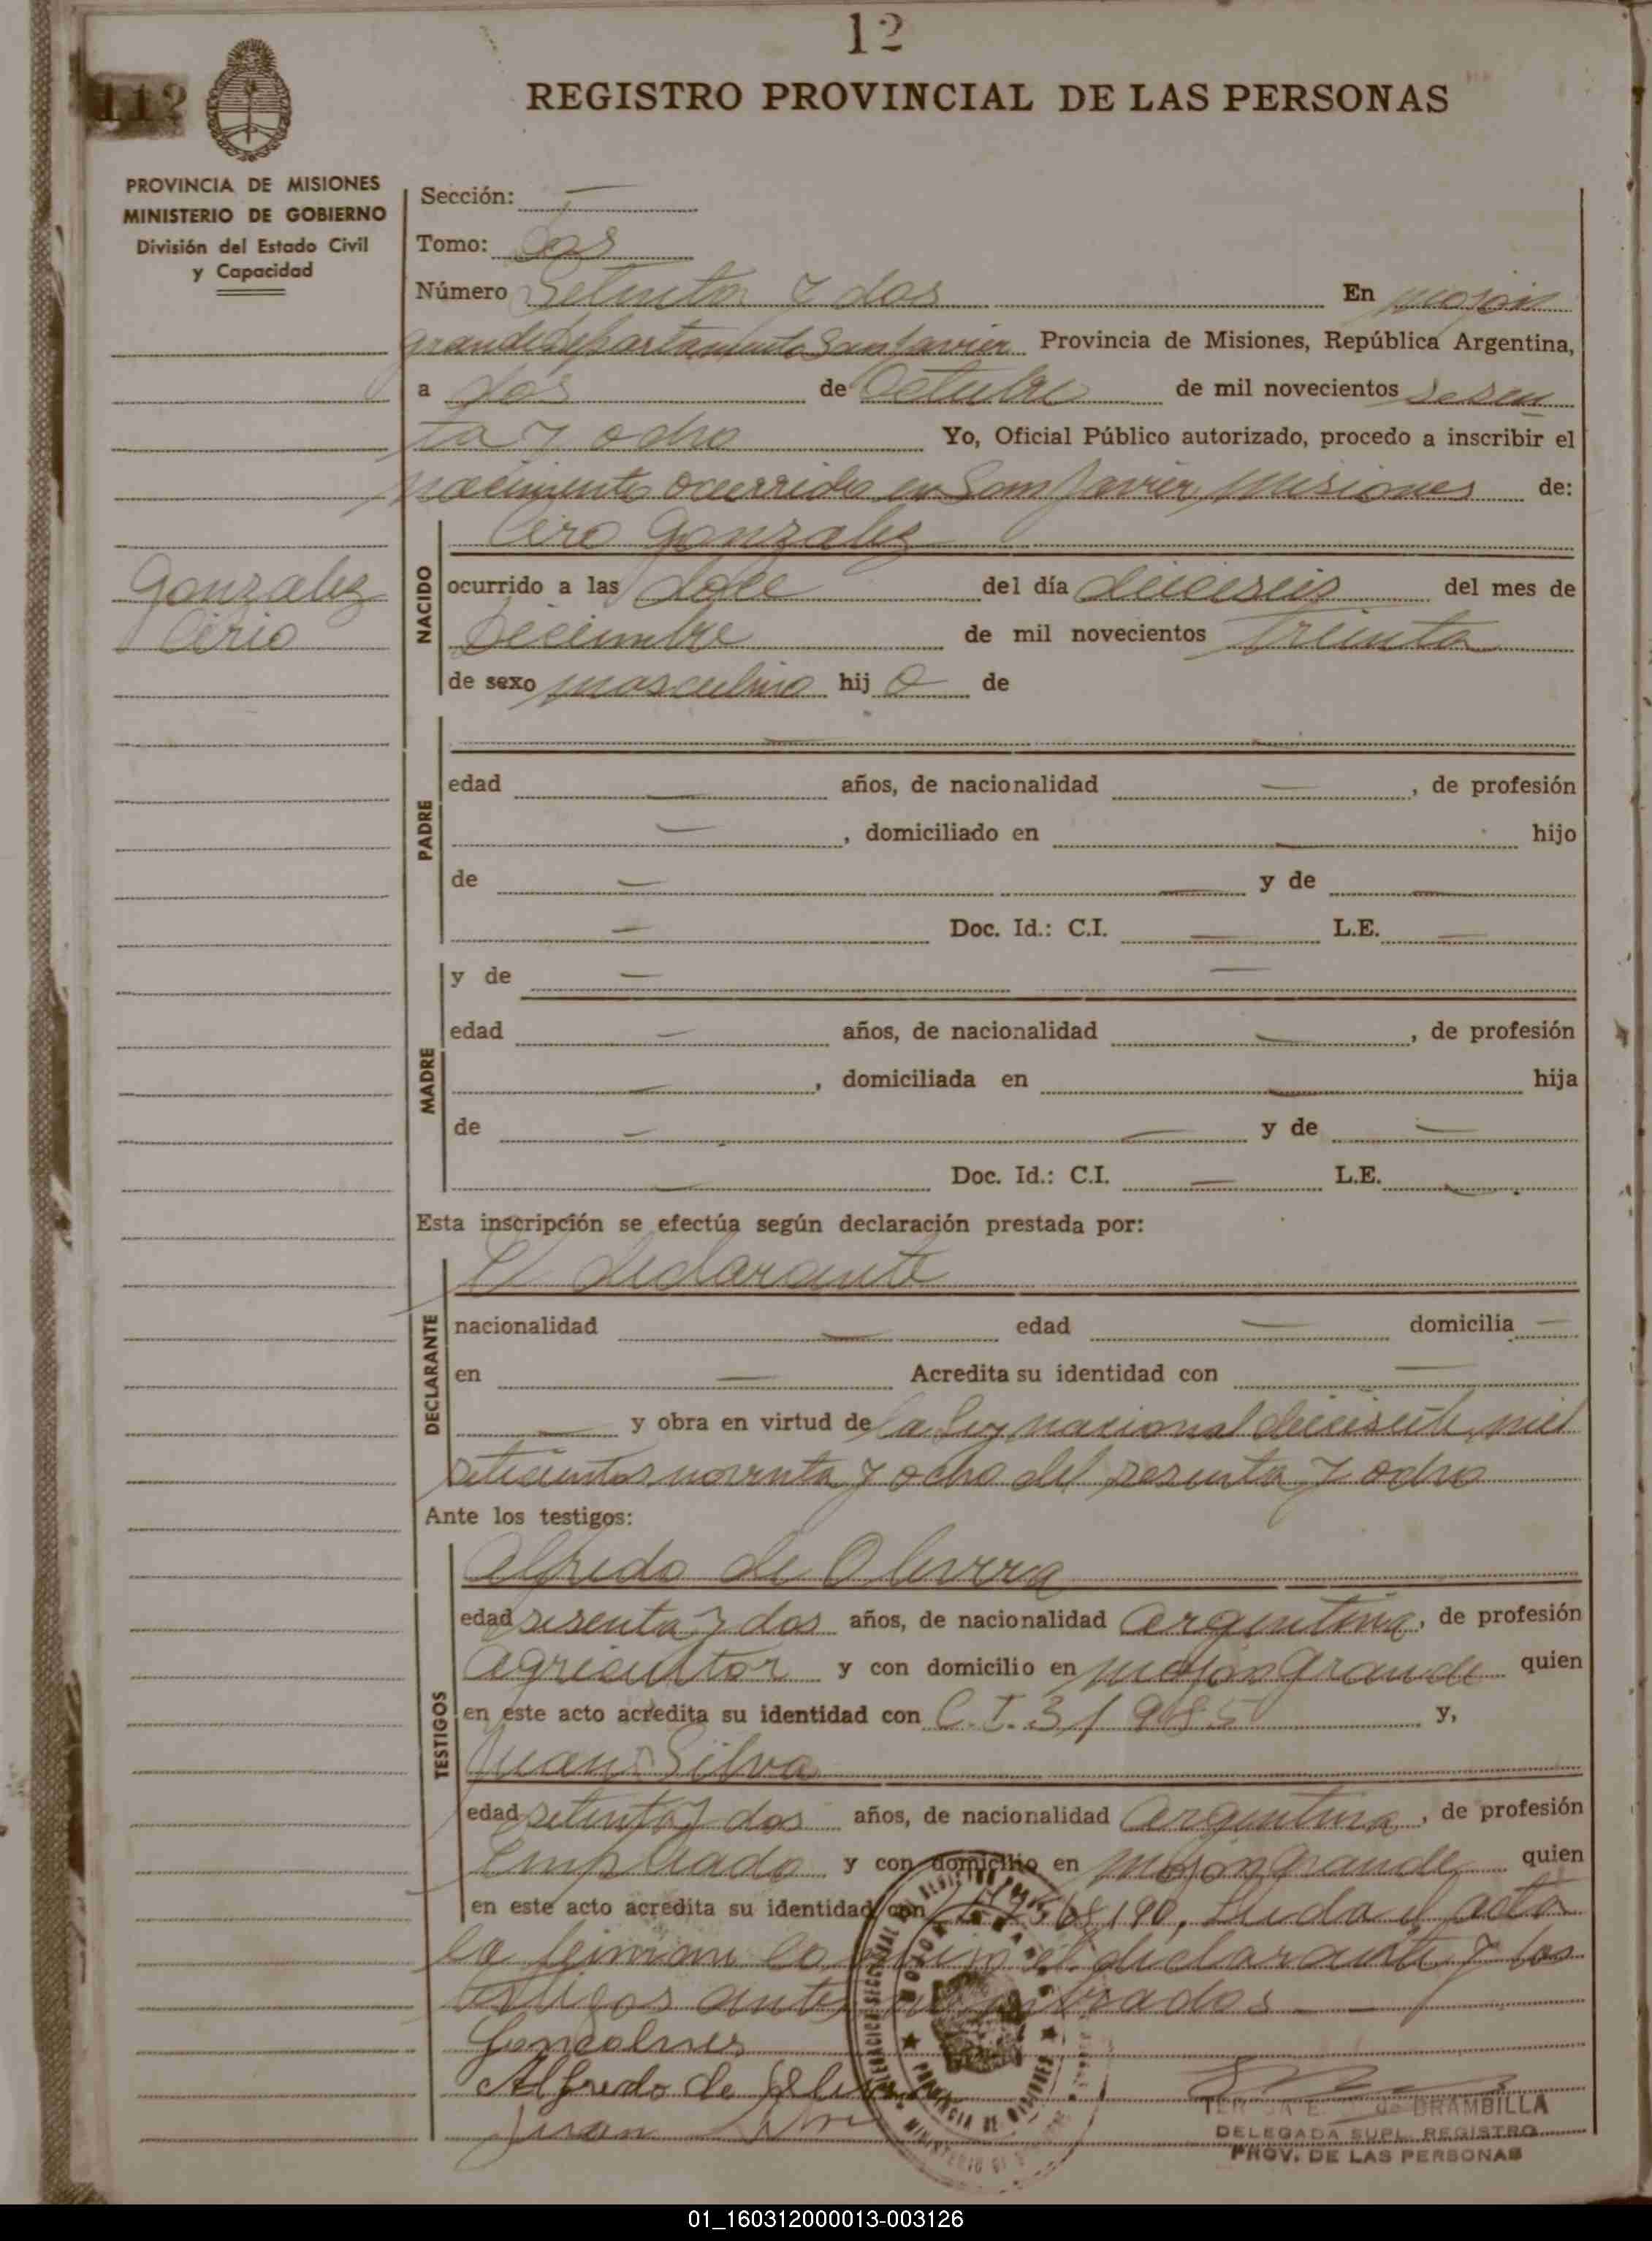 12
112
REGISTRO PROVINCIAL DE LAS PERSONAS
PROVINCIA DE MISIONES
MINISTERIO DE GOBIERNO
División del Estado Civil
y Capacidad
Sección:
Tomo: Dos
Número Setenta y dos En mojon
grande departamento San Javier Provincia de Misiones, República Argentina,
a dos de Octubre de mil novecientos sesen
ta y ocho Yo, Oficial Público autorizado, procedo a inscribir el
nacimiento ocurrido en San Javier, Misiones de:
Ciro Gonzalez
Gonzalez
Cirio
NACIDO
ocurrido a las doce del día dieciseis del mes de
Deciembre de mil novecientos treinta
de sexo masculino hij o de
PADRE
edad — años, de nacionalidad — , de profesión
— , domiciliado en — hijo
de — y de —
— Doc. Id.: C.I. — L.E. —
MADRE
y de —
edad — años, de nacionalidad — , de profesión
— , domiciliada en — hija
de — y de —
— Doc. Id.: C.I. — L.E. —
Esta inscripción se efectúa según declaración prestada por:
El declarante
DECLARANTE
nacionalidad — edad — domicilia —
en — Acredita su identidad con —
— y obra en virtud de la ley nacional diecisiete mil
setecientos noventa y ocho del sesenta y ocho
Ante los testigos:
TESTIGOS
Alfredo de Oliverra
edad sesenta y dos años, de nacionalidad argentina, de profesión
agricultor y con domicilio en mojon grande quien
en este acto acredita su identidad con C.I. 31985 y,
Juan Silva
edad setenta y dos años, de nacionalidad argentina, de profesión
Empleado y con domicilio en mojon grande quien
en este acto acredita su identidad con 190, Leida el acta
la firman el declarante y los
testigos antes nombrados —
Goncalves
Alfredo de
Juan
de BRAMBILLA
DELEGADA SUPL. REGISTRO
PROV. DE LAS PERSONAS
01_160312000013-003126